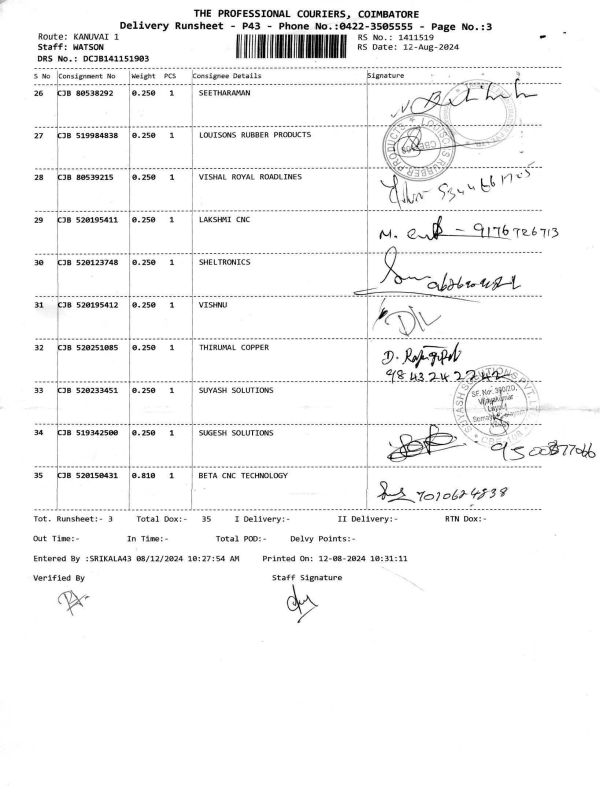 THE PROFESSIONAL COURIERS, COIMBATORE
Delivery Runsheet - P43 - Phone No.:0422-3505555 - Page No.:3
Route: KANUVAI 1 RS No.: 1411519
Staff: WATSON RS Date: 12-Aug-2024
DRS No.: DCJB141151903
S No Consignment No Weight PCS Consignee Details Signature
26 CJB 80538292 0.250 1 SEETHARAMAN
27 CJB 519984838 0.250 1 LOUISONS RUBBER PRODUCTS
LOUISONS RUBBER PRODUCTS
28 CJB 80539215 0.250 1 VISHAL ROYAL ROADLINES
29 CJB 520195411 0.250 1 LAKSHMI CNC
M. - 9176726713
30 CJB 520123748 0.250 1 SHELTRONICS
31 CJB 520195412 0.250 1 VISHNU
32 CJB 520251085 0.250 1 THIRUMAL COPPER
D.
9843242242
33 CJB 520233451 0.250 1 SUYASH SOLUTIONS
SUYASH SOLUTIONS PVT. LTD
SF. No. 580/2D,
Vijayakumar
Layout
34 CJB 519342500 0.250 1 SUGESH SOLUTIONS
35 CJB 520150431 0.810 1 BETA CNC TECHNOLOGY
7010624838
Tot. Runsheet:- 3 Total Dox:- 35 I Delivery:- II Delivery:- RTN Dox:-
Out Time:- In Time:- Total POD:- Delvy Points:-
Entered By :SRIKALA43 08/12/2024 10:27:54 AM Printed On: 12-08-2024 10:31:11
Verified By Staff Signature